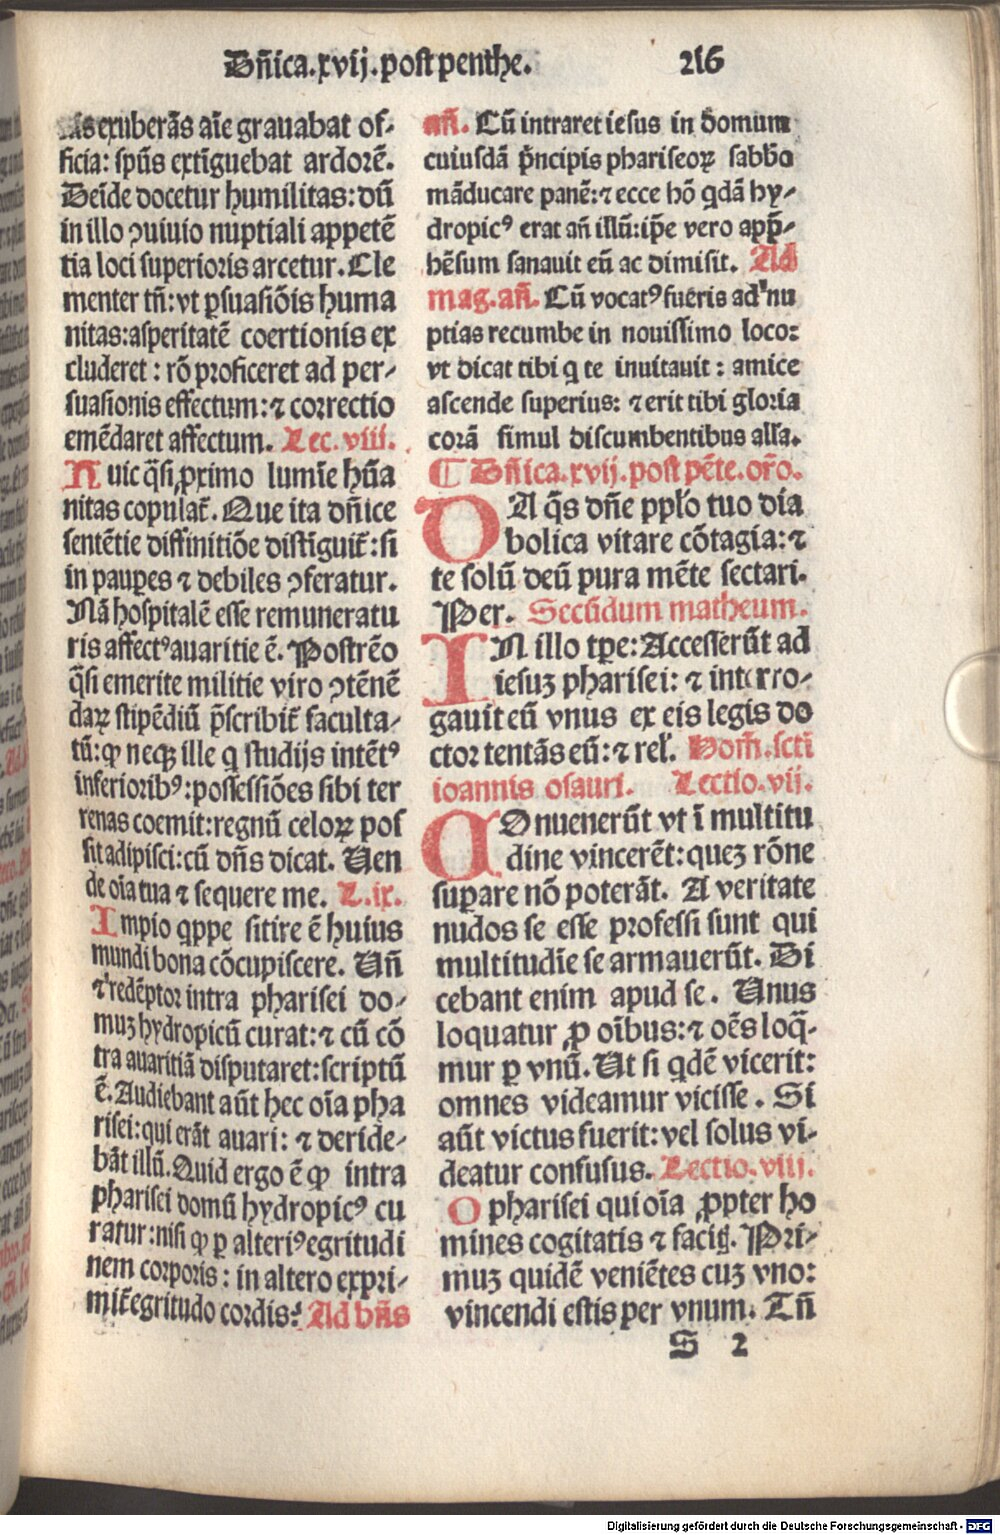 Dñica.xvij.post penthe. 216
exuberãs aĩe grauabat of-
ficia: spũs extĩguebat ardorẽ.
Deĩde docetur humilitas: dũ
in illo ꝯuiuio nuptiali appetẽ
tia loci superioris arcetur. Cle
menter tñ: vt ꝑsuasiõis huma
nitas: asperitatẽ coertionis ex
cluderet: rõ proficeret ad per-
suasionis effectum: ⁊ correctio
emẽdaret affectum. Lec. viii.
Huic q̃si ꝓximo lumĩe hũa
nitas copulat̃. Que ita dñice
sentẽtie diffinitiõe distĩguit̃: si
in pauꝑes ⁊ debiles ꝯferatur.
Nã hospitalẽ esse remuneratu
ris affectꝰ auaritie ẽ. Postrẽo
q̃si emerite militie viro ꝯtẽnẽ
daꝝ stipẽdiũ p̃scribit̃ faculta-
tũ: ꝙ neqꝫ ille q studijs intẽtꝰ
inferioribꝰ: possessiões sibi ter
renas coemit: regnũ celoꝝ pos
sit adipisci: cũ dñs dicat. Uen
de oĩa tua ⁊ sequere me. L.ix.
Impio qppe sitire ẽ huius
mundi bona cõcupiscere. Uñ
⁊ redẽptor intra pharisei do-
muꝫ hydropicũ curat: ⁊ cũ cõ
tra auaritiã disputaret: scriptũ
ẽ. Audiebant aũt hec oĩa pha
risei: qui erãt auari: ⁊ deride-
bãt illũ. Quid ergo ẽ ꝙ intra
pharisei domũ hydropicꝰ cu
ratur: nisi ꝙ ꝑ alteriꝰ egritudi
nem corporis: in altero expri-
mit̃ egritudo cordis? Ad bñs
añ. Cũ intraret iesus in domum
cuiusdã p̃ncipis phariseoꝝ sabbo
mãducare panẽ: ⁊ ecce hõ qdã hy-
dropicꝰ erat añ illũ: ip̃e vero app̃-
hẽsum sanauit eũ ac dimisit. Ad
mag. añ. Cũ vocatꝰ fueris ad nu
ptias recumbe in nouissimo loco:
vt dicat tibi q te inuitauit: amice
ascende superius: ⁊ erit tibi gloria
corã simul discumbentibus alľa.
¶ Dñica.xvij.post pẽte. orõ.
DA q̃s dñe ppľo tuo dia
bolica vitare cõtagia: ⁊
te solũ deũ pura mẽte sectari.
Per. Secũdum matheum.
IN illo tꝑe: Accesserũt ad
iesuꝫ pharisei: ⁊ interro-
gauit eũ vnus ex eis legis do
ctor tentãs eũ: ⁊ reľ. Hom̃. scti
ioannis osauri. Lectio. vii.
COnuenerũt vt ĩ multitu
dine vincerẽt: queꝫ rõne
suꝑare nõ poterãt. A veritate
nudos se esse professi sunt qui
multitudĩe se armauerũt. Di
cebant enim apud se. Unus
loquatur ꝓ oĩbus: ⁊ oẽs loq̃-
mur ꝑ vnũ. Ut si qdẽ vicerit:
omnes videamur vicisse. Si
aũt victus fuerit: vel solus vi-
deatur confusus. Lectio. viii.
O pharisei qui oĩa ꝓpter ho
mines cogitatis ⁊ facitꝭ. Pri-
muꝫ quidẽ veniẽtes cuꝫ vno:
vincendi estis per vnum. Tñ
S 2
Digitalisierung gefördert durch die Deutsche Forschungsgemeinschaft - DFG